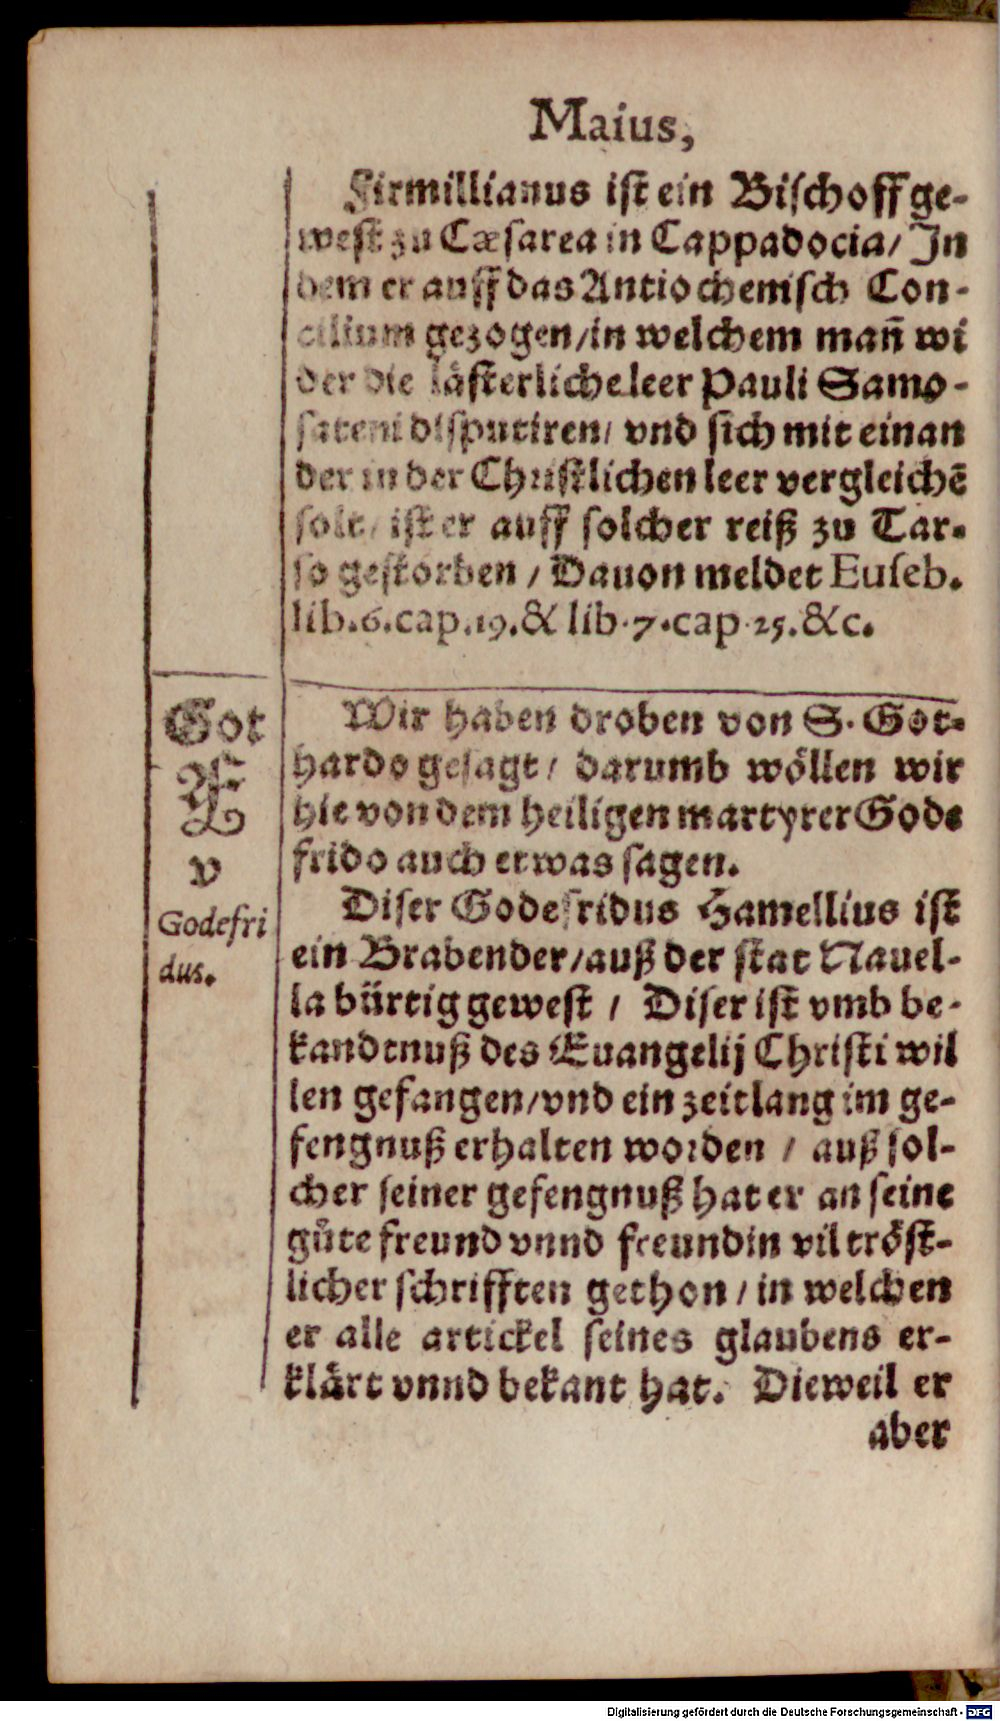 Maius,
Firmillianus ist ein Bischoff ge-
west zu Cæsarea in Cappadocia/ In
dem er auff das Antiochemsch Con-
cilium gezogen/in welchem mañ wi
der die lästerliche leer Pauli Samo-
sateni disputiren/ vnd sich mit einan
der in der Christlichen leer vergleichẽ
solt/ ist er auff solcher reiß zu Tar-
so gestorben / Dauon meldet Euseb.
lib.6.cap.19.& lib.7.cap.25.&c.
Got
E
v
Godefri
dus.
Wir haben droben von S. Got-
hardo gesagt/ darumb wöllen wir
hie von dem heiligen martyrer Gode
frido auch etwas sagen.
Diser Godefridus Hamellius ist
ein Brabender/auß der stat Nauel-
la bürtig gewest / Diser ist vmb be-
kandtnuß des Euangelij Christi wil
len gefangen/vnd ein zeitlang im ge-
fengnuß erhalten worden / auß sol-
cher seiner gefengnuß hat er an seine
gůte freund vnnd freundin vil tröst-
licher schrifften gethon/in welchen
er alle artickel seines glaubens er-
klärt vnnd bekant hat. Dieweil er
aber
Digitalisierung gefördert durch die Deutsche Forschungsgemeinschaft - DFG